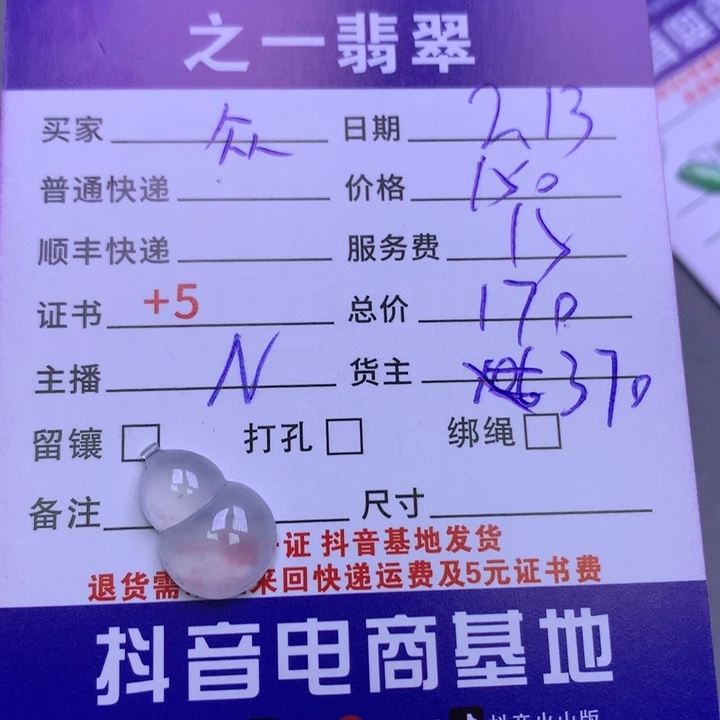 之一翡翠
买家 众 日期 2.13
普通快递 价格 150
顺丰快递 服务费 15
证书 +5 总价 170
主播 N 货主 370
留镶 打孔 绑绳
备注 尺寸
证 抖音基地发货
退货需 来回快递运费及5元证书费
抖音电商基地